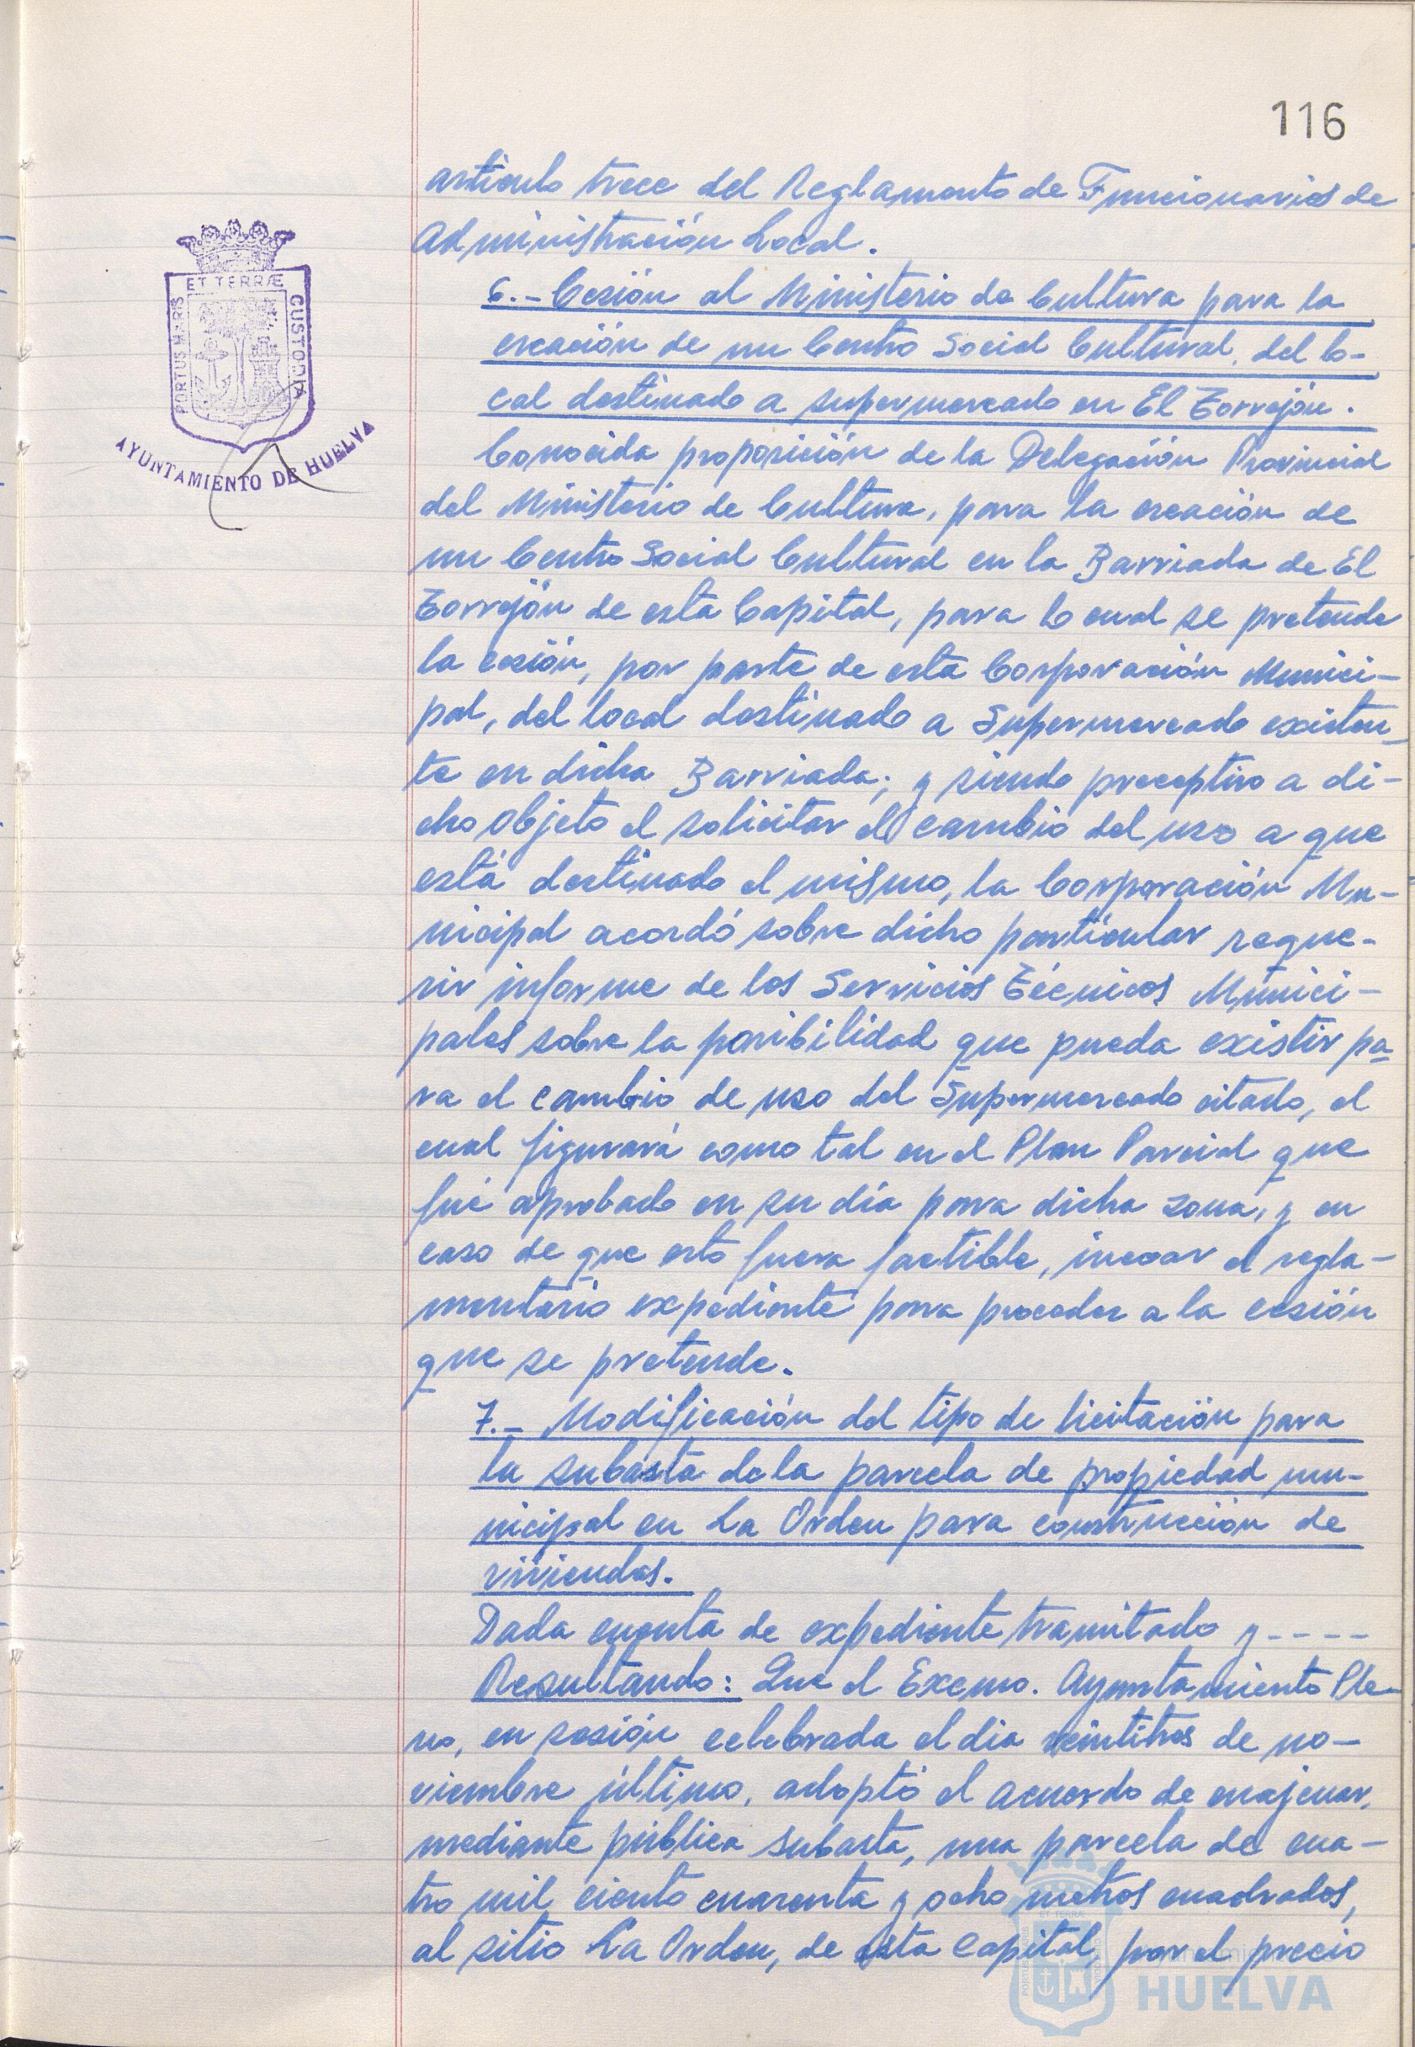 116
artículo trece del Reglamento de Funcionarios de
Administración Local.
6.- Cesión al Ministerio de Cultura para la
creación de un Centro Social Cultural, del lo-
cal destinado a supermercado en El Torrejón.
Conocida proposición de la Delegación Provincial
del Ministerio de Cultura, para la creación de
un Centro Social Cultural en la Barriada de El
Torrejón de esta Capital, para lo cual se pretende
la cesión, por parte de esta Corporación Munici-
pal, del local destinado a Supermercado existen-
te en dicha Barriada; y siendo preceptivo a di-
cho objeto el solicitar el cambio del uso a que
está destinado el mismo, la Corporación Mu-
nicipal acordó sobre dicho particular reque-
rir informe de los Servicios Técnicos Munici-
pales sobre la posibilidad que pueda existir pa
ra el cambio de uso del Supermercado citado, el
cual figurará como tal en el Plan Parcial que
fué aprobado en su día para dicha zona, y en
caso de que esto fuera factible, incoar el regla-
mentario expediente para proceder a la cesión
que se pretende.
7.- Modificación del tipo de licitación para
la subasta de la parcela de propiedad mu-
nicipal en La Orden para construcción de
viviendas.
Dada cuenta de expediente tramitado y ----
Resultando: Que el Excmo. Ayuntamiento Ple-
no, en sesión celebrada el dia veintitres de no-
viembre último, adoptó el acuerdo de enajenar,
mediante pública subasta, una parcela de cua-
tro mil ciento cuarenta y ocho metros cuadrados,
al sitio La Orden, de esta Capital, por el precio
PORTUS MARIS ET TERRÆ CUSTODIA
AYUNTAMIENTO DE HUELVA
HUELVA